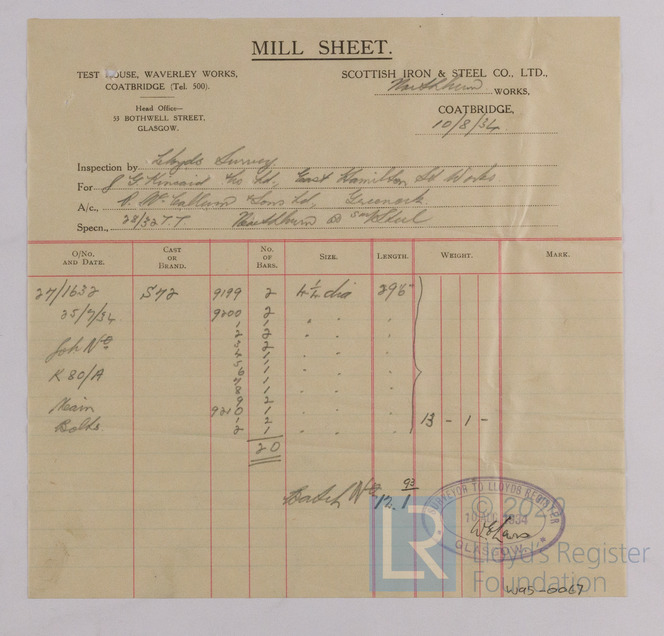 MILL SHEET.
TEST HOUSE, WAVERLEY WORKS,
COATBRIDGE (Tel. 500).
Head Office—
53 BOTHWELL STREET,
GLASGOW.
SCOTTISH IRON & STEEL CO., LTD.,
Northburn WORKS,
COATBRIDGE,
10/8/34
Inspection by Lloyds Survey
For J G. Kincaid & Co Ld, East Hamilton St Works
A/c., P. McCallum & Sons Ld, Greenock
Specn., 28/32 T.T Northburn Steel
O/No. AND DATE. CAST OR BRAND. No. OF BARS. SIZE. LENGTH. WEIGHT. MARK.
27/1632 S72 9199 2 4½ dia
25/7/34. 9200 2
1 2
2 2
Job No 3 2
4 1
5 1
K 80/A 6 1
7 1
8 1
Main 9 2
9210 1 13 - 1 -
Bolts. 1 2
2 1
20
Batch No 93
12.1
SURVEYOR TO LLOYDS REGISTER
10 AUG 1934
GLASGOW
© 2020
LR
Lloyd's Register
Foundation
W95-0067